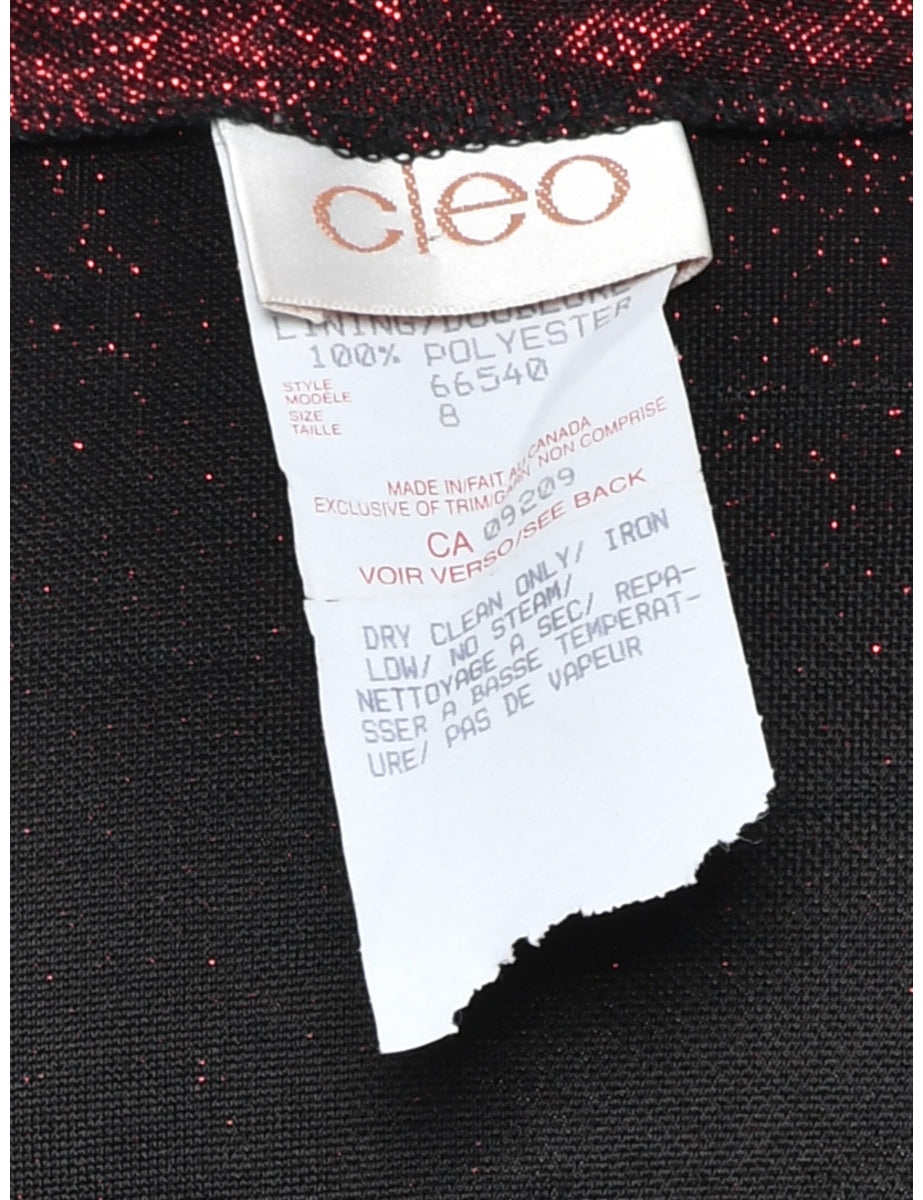 cleo
LINING/DOUBLURE
100% POLYESTER
STYLE
MODÈLE 66540
SIZE
TAILLE 8
MADE IN/FAIT AU CANADA
EXCLUSIVE OF TRIM/GARN. NON COMPRISE
CA 09209
VOIR VERSO/SEE BACK
DRY CLEAN ONLY/ IRON
LOW/ NO STEAM/
NETTOYAGE A SEC/ REPA-
SSER A BASSE TEMPERAT-
URE/ PAS DE VAPEUR